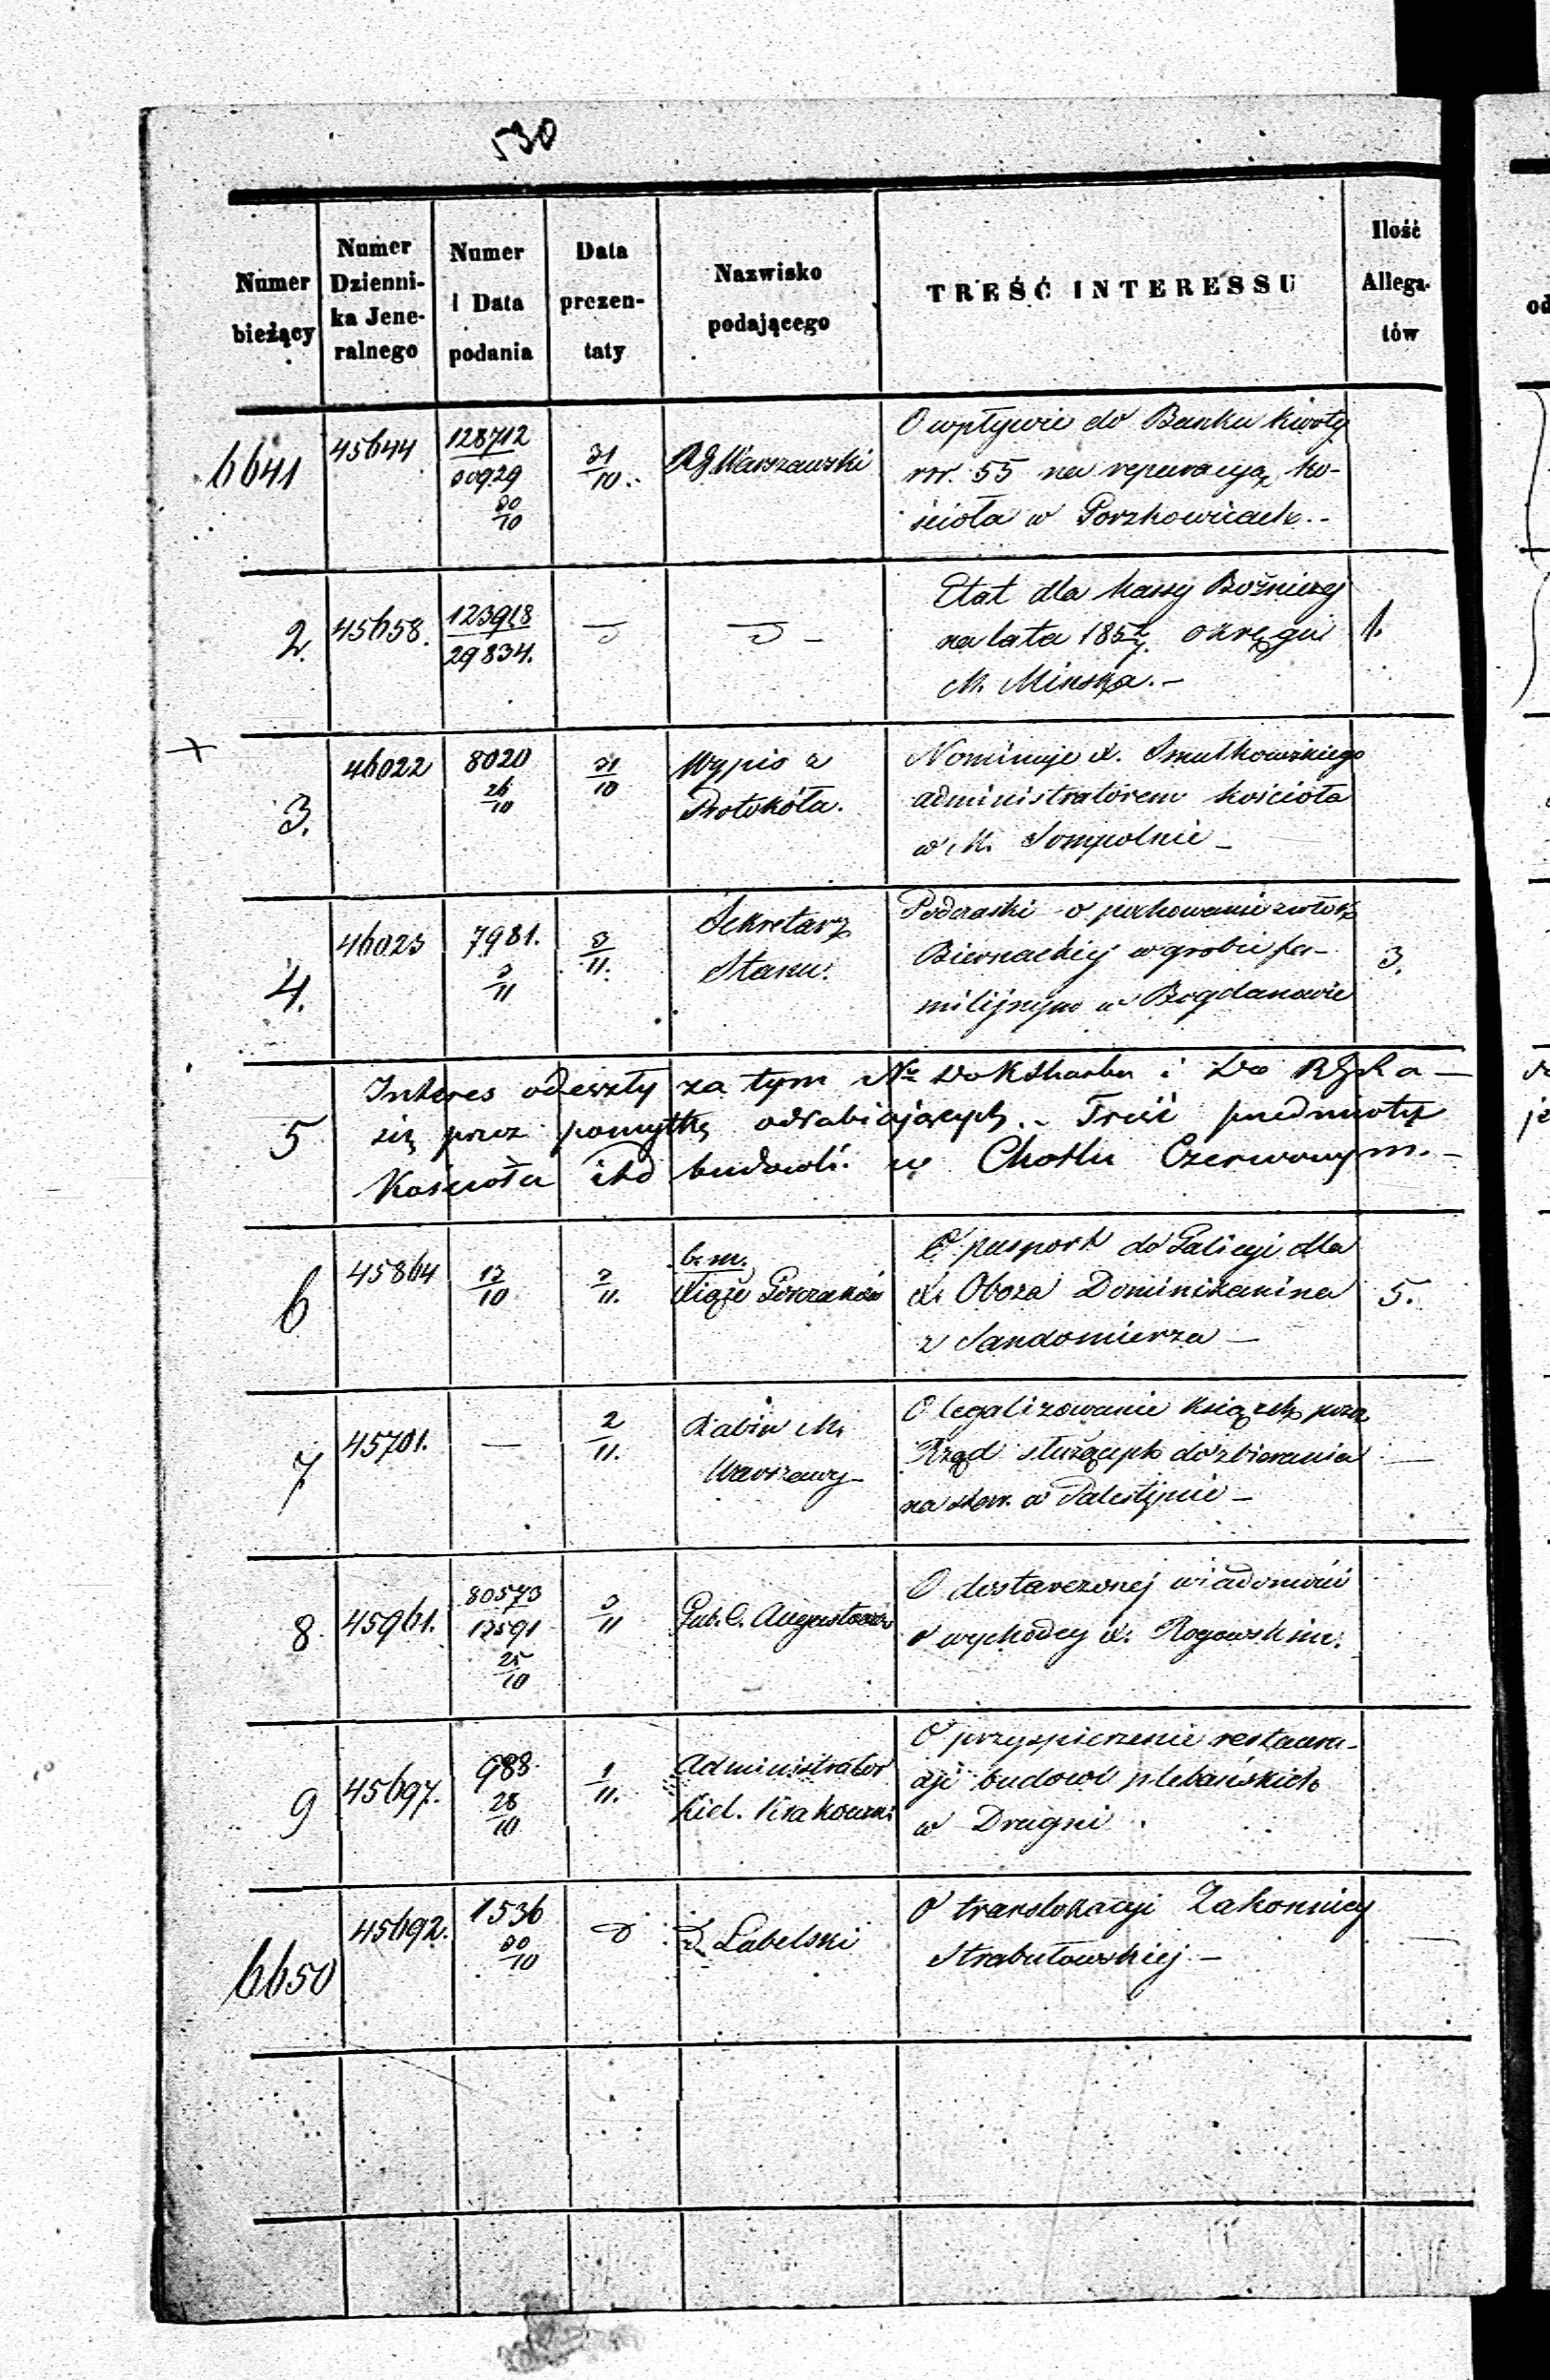 530
Numer bieżący
Numer Dzienni-ka Jene-ralnego
Numer i Data podania
Data prezen-taty
Nazwisko podającego
TREŚĆ INTERESSU
Ilość Allega-tów
6641 45644 128712 / 30929 30/10 31/10 RG Warszawski O wpływie do Banku kwoty
rsr. 55 na reparacyą ko-
ścioła w Gorzkowicach.-
2. 45658. 123918 / 29834. Etat dla kassy Bożniczej 1.
na lata okręgu
M. Minska.-
3. 46022 8020 26/10 31/10 Wypis z Nominuje X. Smutkowskiego
Protokóła. administratorem kościoła
w M. Sompolnie -
4. 46023 7981. 3/11 3/11. Sekretarz Podczaski - o pochowanie zwłok 3.
Stanu. Biernackiej w grobie fa-
milijnym w Bogdanowie
5 Interes odeszły za tym No do i do
się przez pomyłkę odrabiających.- Treść
Kościoła itd budowli w Chotlu Czerwonym.-
6 45864 17/10 2/11. b. m. O pasport do Galicyi dla 5.
Xiąże Gorczaków X. Oboza Dominikanina
z Sandomierza -
7 45701. — 2/11. Rabin M. O legalizowanie książek przez —
Warszawy- Rząd służących do zbierania
na w Palestynie -
8. 45961. 80573 / 17591 25/10 3/11 Gub. C. Augustowski O dostarczonej wiadomości
o wychodcy X. Rogowskim.
9 45697. 988. 28/10 1/11. Administrator O przyspieszenie restaura-
Kiel. Krakowski cyi budowli plebańskich
w Drugni.
6650 45692. 1536 30/10 Lubelski O translokacyi Zakonnicy —
Strabułowskiej -